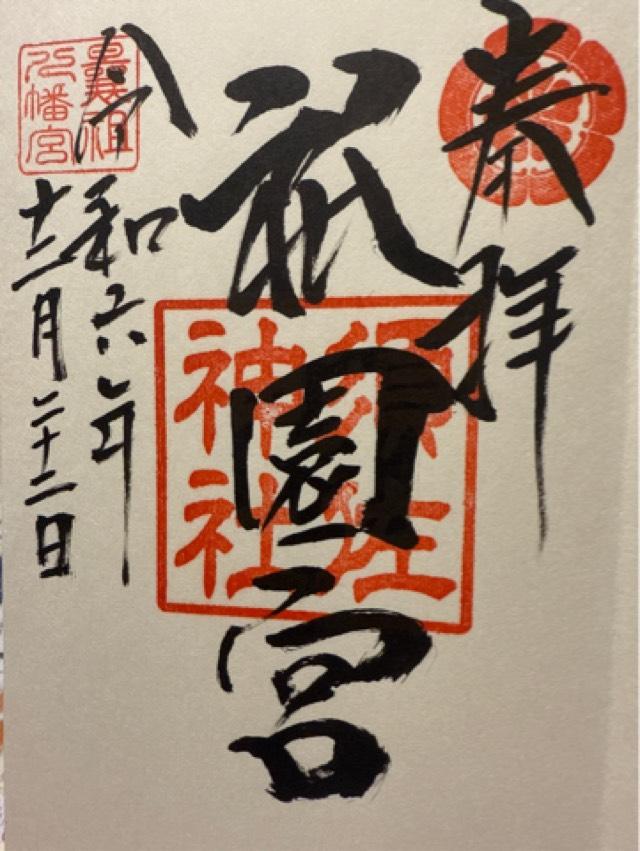 奉拝
祇園宮
須佐
神社
令和六年
十二月二十二日
八幡宮